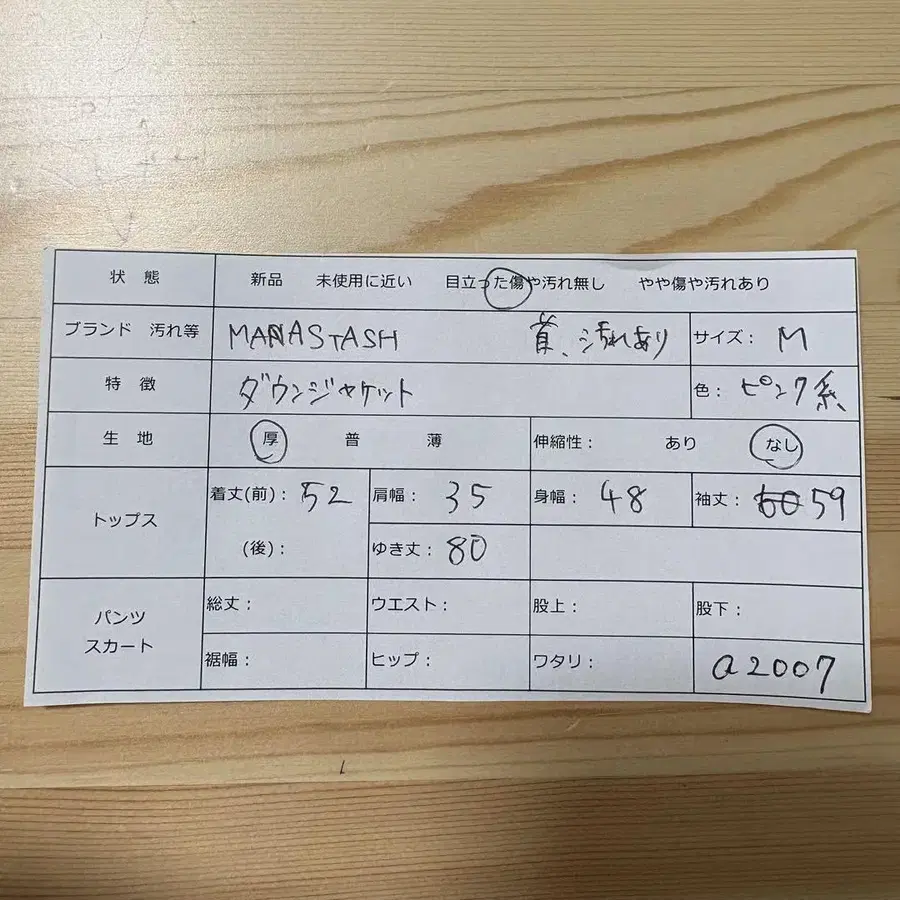 状 態 新品 未使用に近い 目立った傷や汚れ無し やや傷や汚れあり
ブランド 汚れ等 MANASTASH 首、汚れあり サイズ: M
特 徴 ダウンジャケット 色: ピンク系
生 地 厚 普 薄 伸縮性: あり なし
トップス 着丈(前): 52 肩幅: 35 身幅: 48 袖丈: 59
(後): ゆき丈: 80
パンツ スカート 総丈: ウエスト: 股上: 股下:
裾幅: ヒップ: ワタリ: a2007